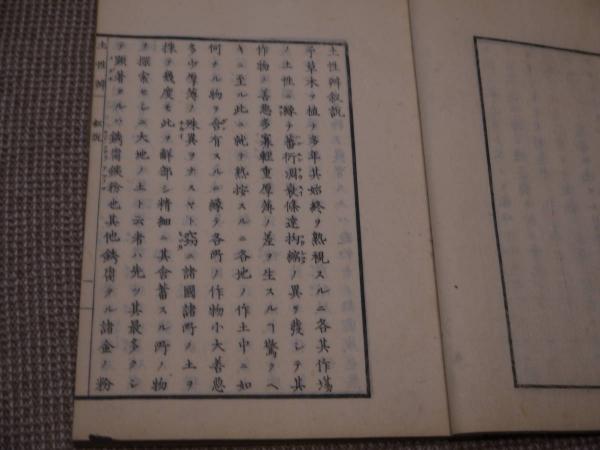 土性辨叙説
予草木ヲ植テ多年其始終ヲ熟視スルニ各其作場
ノ土性ニ縁テ蕃衍凋衰條達拘縮ノ異ヲ發シテ其
作物ノ善惡多寡輕重厚薄ノ差ヲ生スルヿ驚クヘ
キニ至ル此ニ就テ熟按スルニ各地ノ作土中ニ如
何ナル物ヲ含有スルニ縁テ各所ノ作物小大善惡
多少厚薄ノ殊異ヲナスヤト窃ニ諸國諸所ノ土ヲ
採テ幾度モ此ヲ解部シ精細ニ其含蓄スル所ノ物
ヲ探索セシニ大地ノ土ト云者ハ先ツ其最多クシ
テ顯著タルハ銹膚鐵粉也其他銹膚タル諸金ノ粉
土性辨 叙説